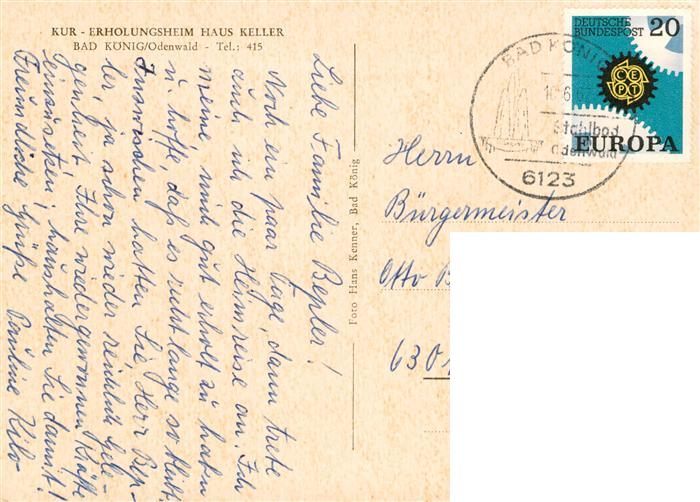 KUR - ERHOLUNGSHEIM HAUS KELLER
BAD KÖNIG/Odenwald - Tel.: 415
Liebe Familie Bepler!
Noch ein paar Tage, dann trete
auch ich die Heimreise an. Ich
meine mich gut erholt zu haben
u. hoffe, daß es recht lange so bleibt.
Inzwischen hatten Sie, Herr Bep-
ler ja schon wieder reichlich Gele-
genheit Ihre wiedergewonnen Kräfte
einzusetzen; haushalten Sie damit!
Freundliche Grüße Pauline
Foto Hans Kenner, Bad König
DEUTSCHE
BUNDESPOST 20
CEPT
EUROPA
BAD KÖNIG
Stahlbad
odenwald
6123
Herrn
Bürgermeister
Otto B
630